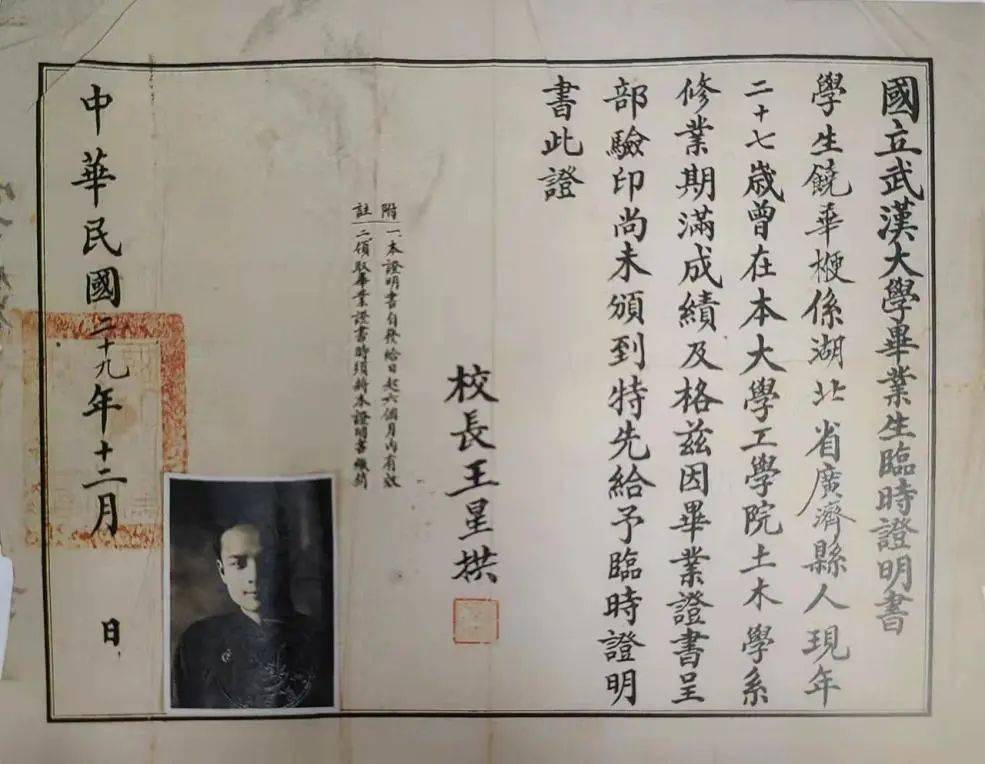 國立武漢大學畢業生臨時證明書
學生饒華梗係湖北省廣濟縣人現年
二十七歲曾在本大學工學院土木學系
修業期滿成績及格茲因畢業證書呈
部驗印尚未頒到特先給予臨時證明
書此證
校長王星拱
附註
一本證明書自發給日起六個月內有效
二領取畢業證書時須將本證明書繳銷
中華民國二十九年十二月 日